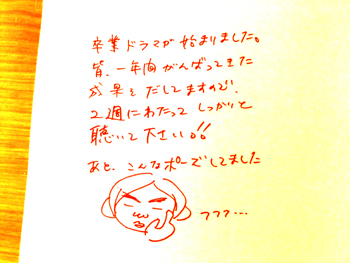 卒業ドラマが始まりました。
皆、一年間がんばってきた
成果をだしてますので、
2週にわたって しっかりと
聴いて下さい!!
あと、こんなポーズしてました
フフフ…